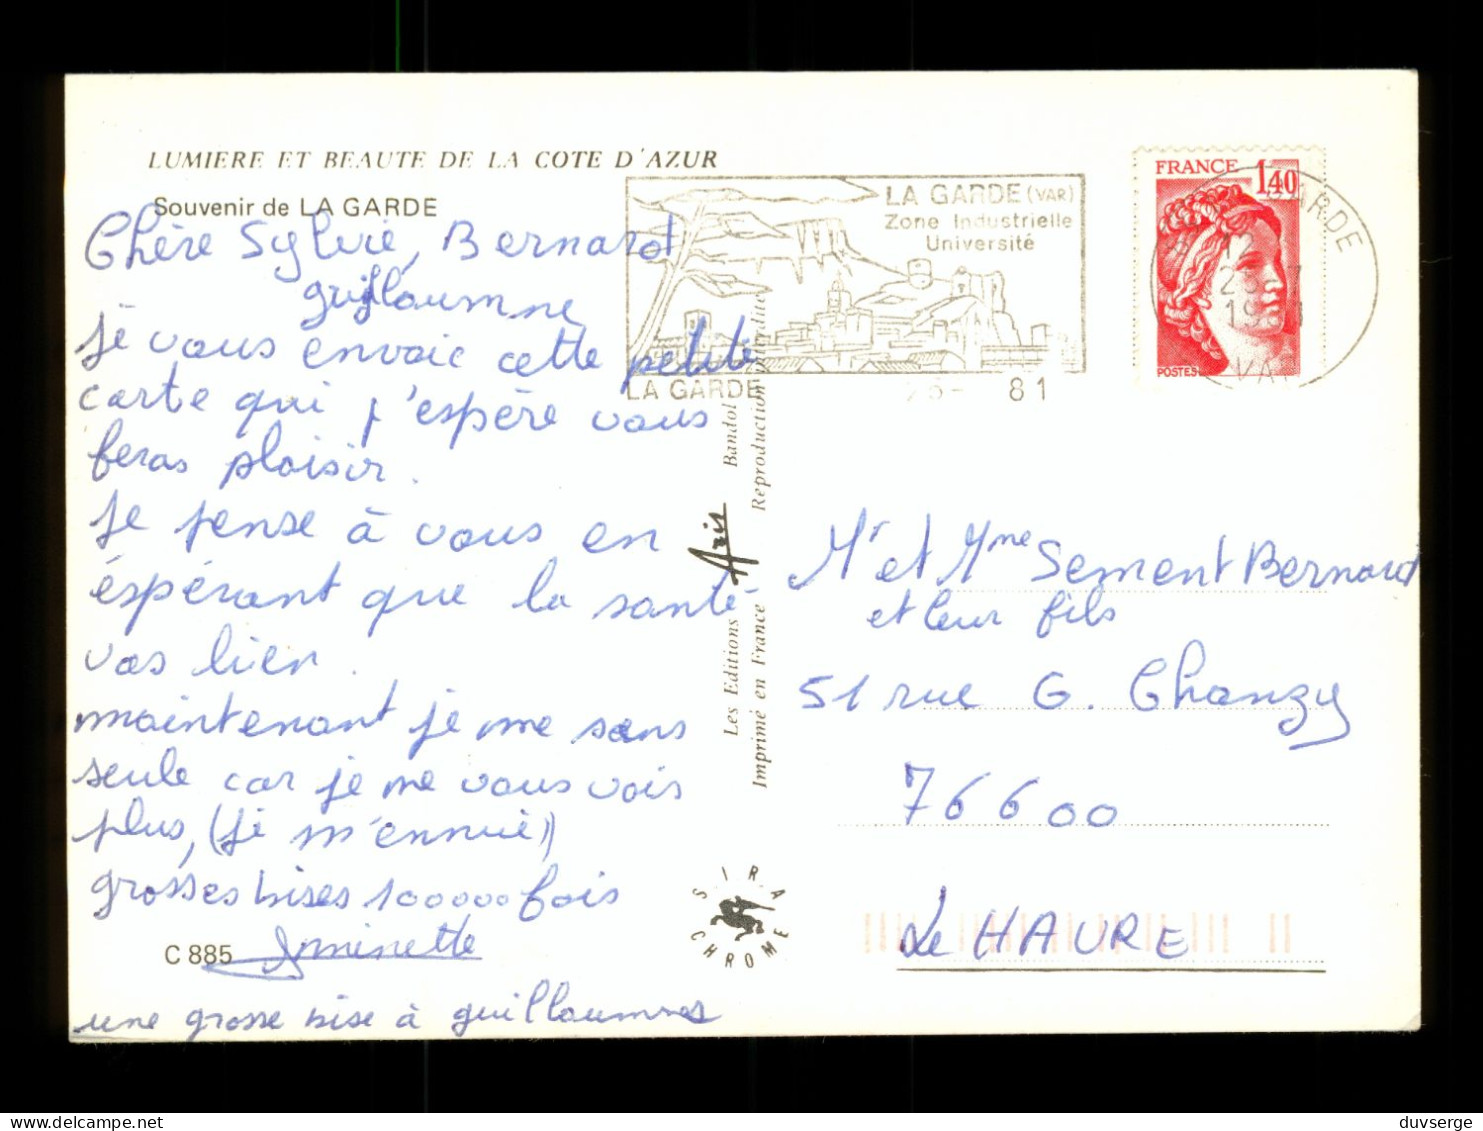 LUMIERE ET BEAUTE DE LA COTE D'AZUR
Souvenir de LA GARDE
Chère Sylvie, Bernard
guillaumne
je vous envoie cette petite
carte qui j'espère vous
feras plaisir.
Je pense à vous en
éspérant que la santé
vas bien.
maintenant je me sens
seule car je ne vous vois
plus, (je m'ennuie)
grosses bises 100000 fois
C 885
une grosse bise à guillaumnes
LA GARDE (VAR)
Zone Industrielle
Université
LA GARDE
81
FRANCE
1,40
POSTES
Les Editions Aris Bandol
Imprimé en France Reproduction interdite
SIRA
CHROME
Mr et Mme Sement Bernard
et leur fils
51 rue G. Chanzy
76600
Le HAVRE
duvserge